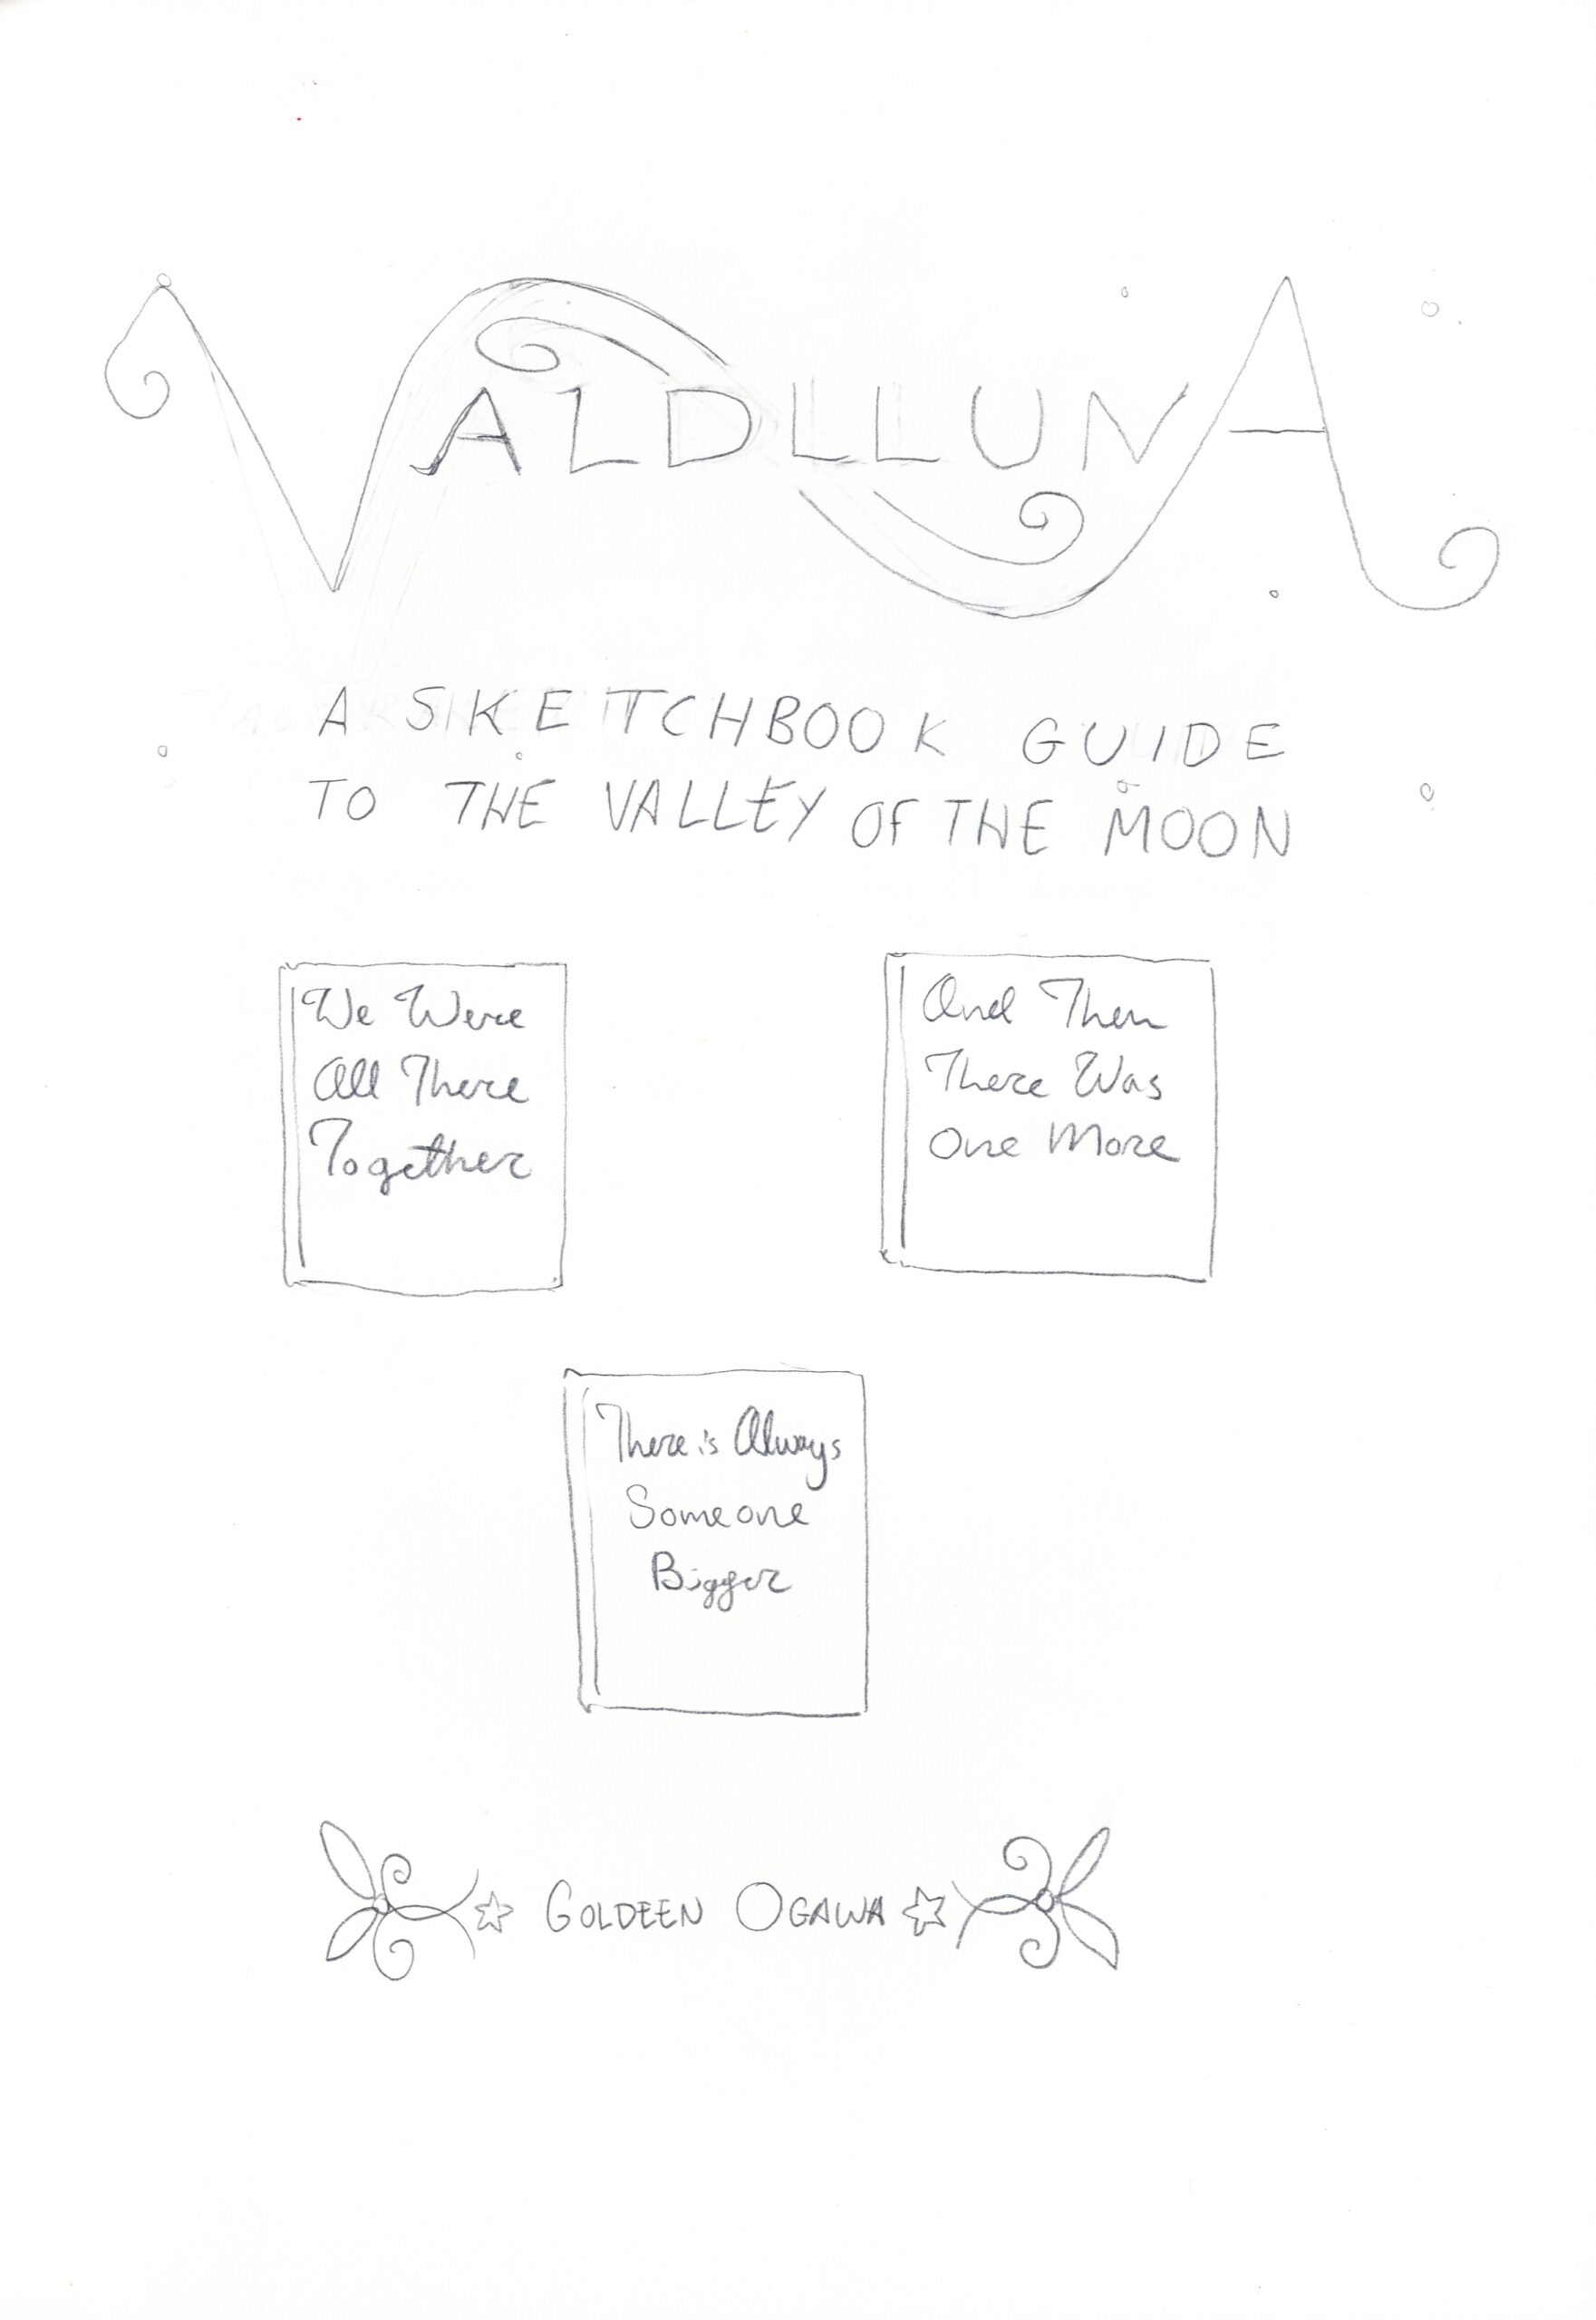 VALDLLUNA
A SKETCHBOOK GUIDE
TO THE VALLEY OF THE MOON
We Were
All There
Together
And Then
There Was
One More
There is Always
Someone
Bigger
GOLDEEN OGAWA